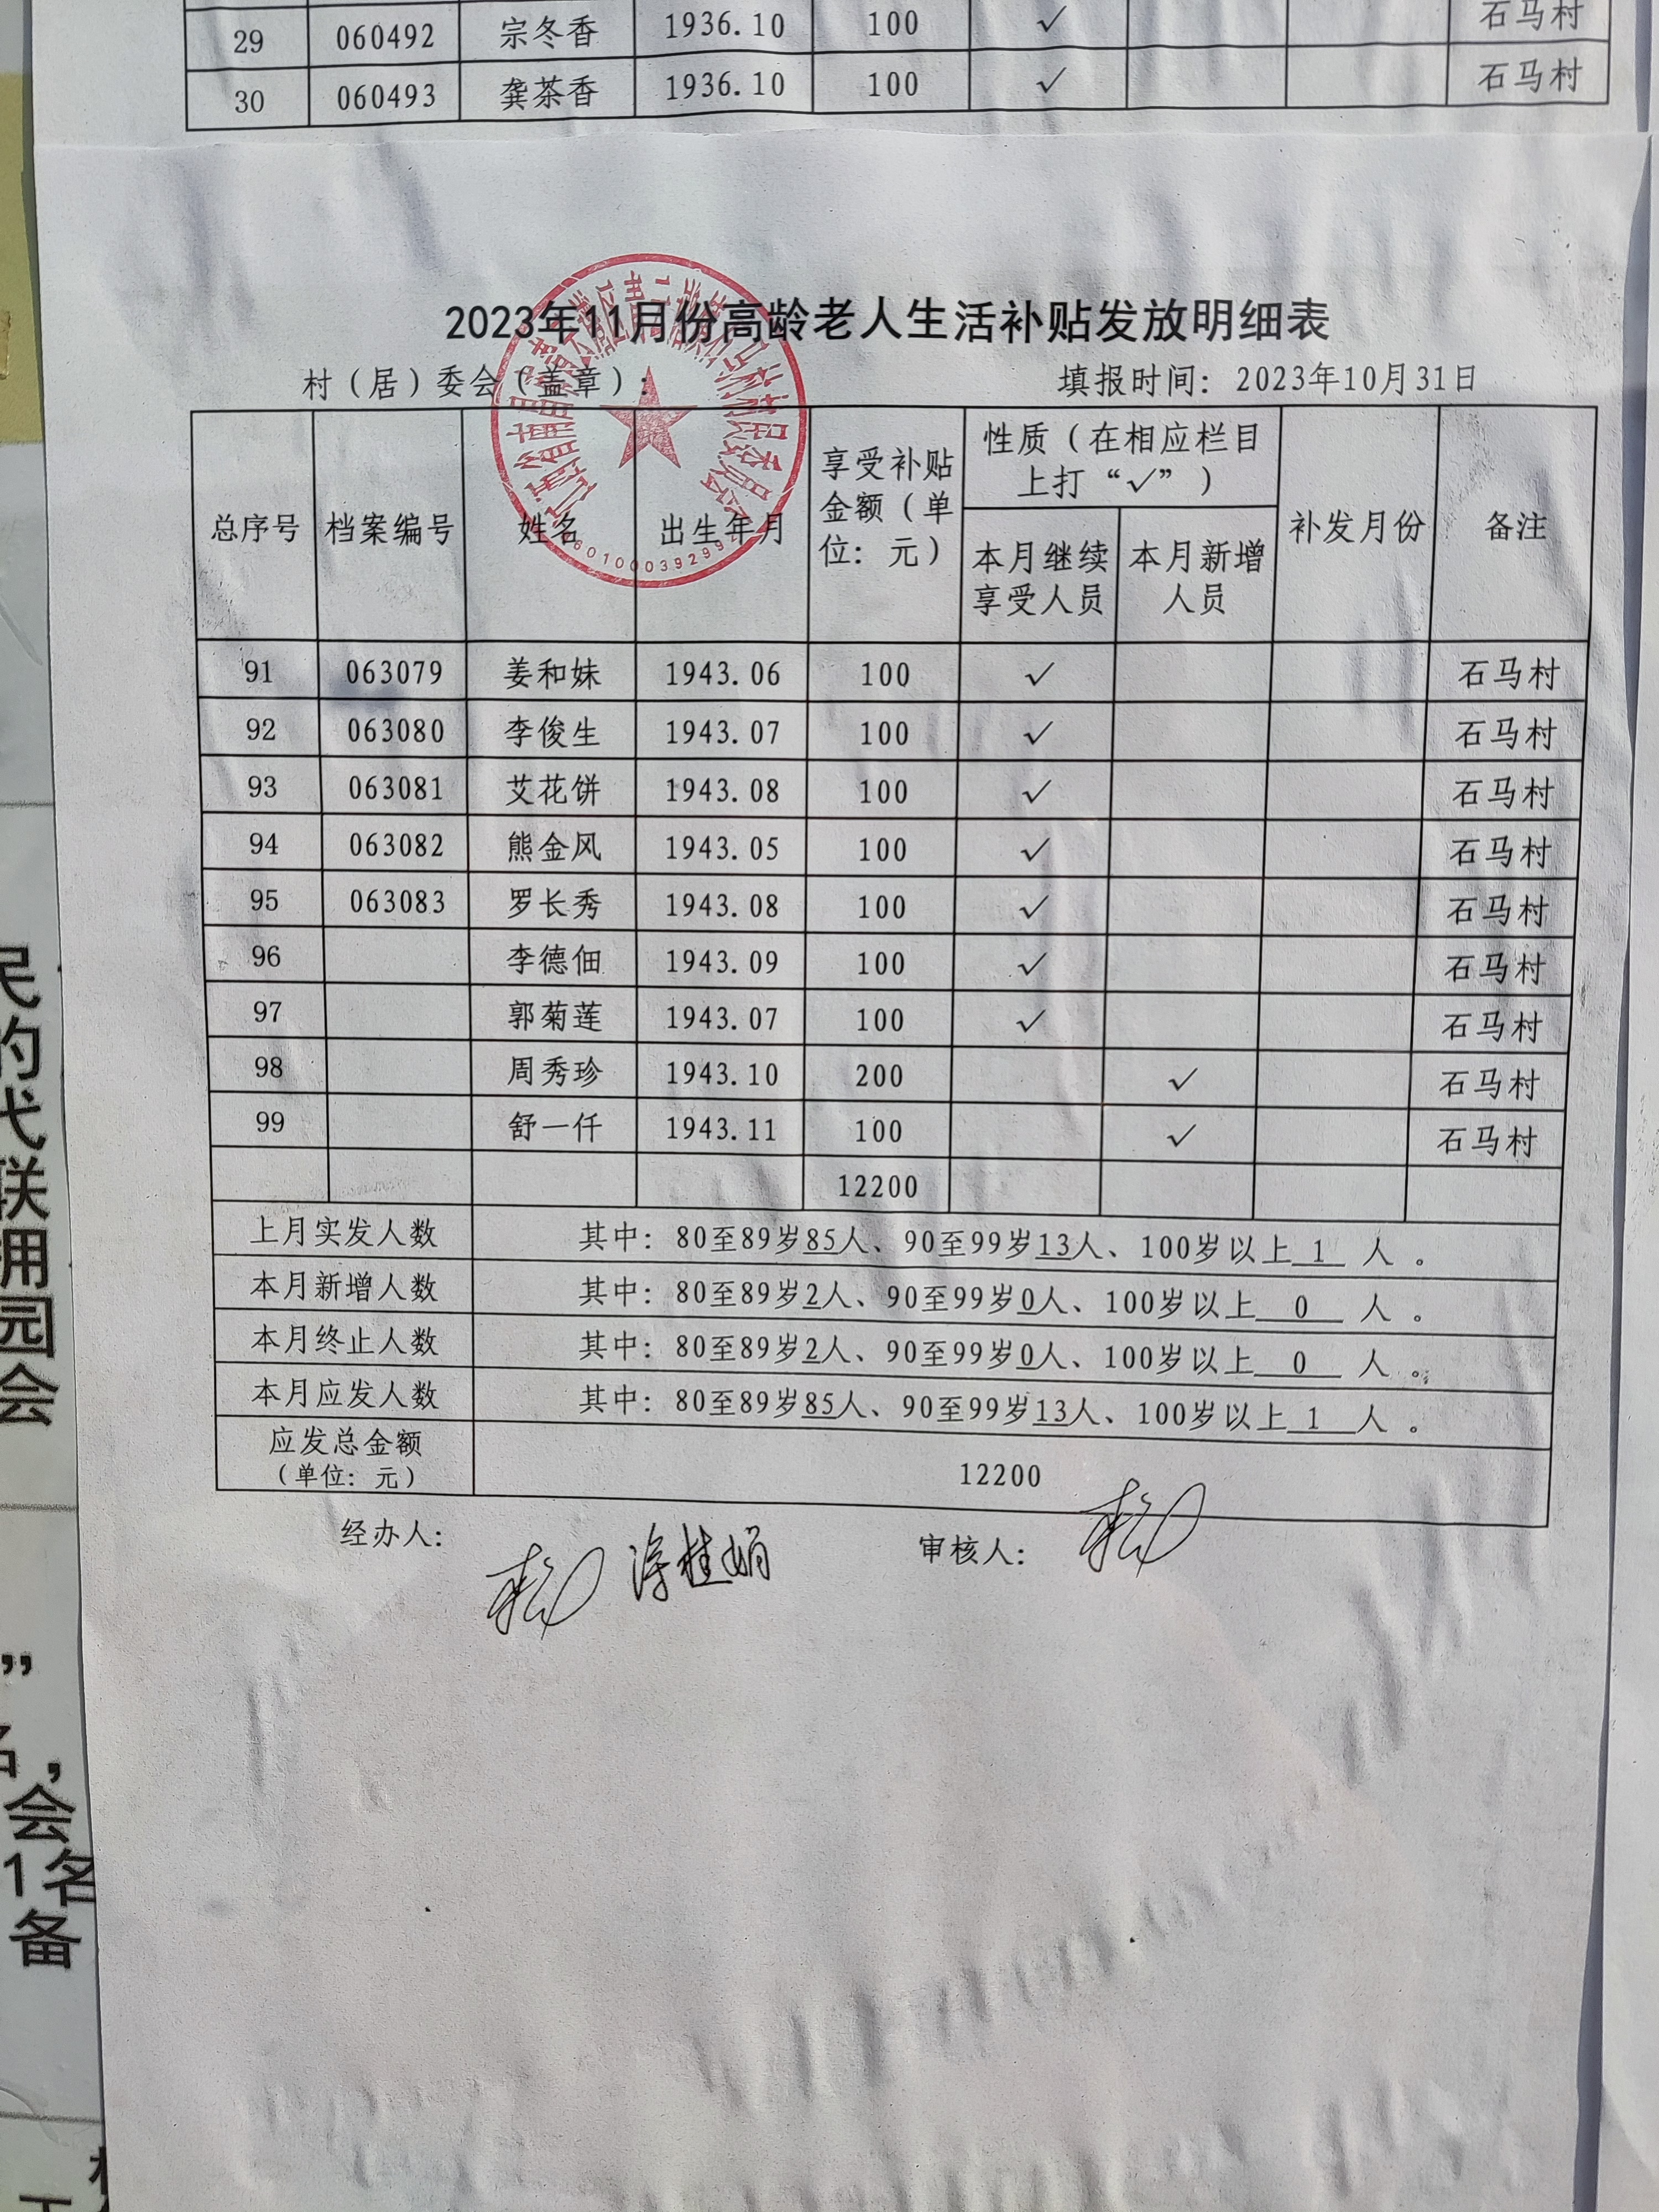 29 060492 宗冬香 1936.10 100 √ 石马村
30 060493 龚茶香 1936.10 100 √ 石马村
2023年11月份高龄老人生活补贴发放明细表
村（居）委会（盖章）： 填报时间：2023年10月31日
总序号 档案编号 姓名 出生年月 享受补贴金额（单位：元） 性质（在相应栏目上打“√”） 补发月份 备注
本月继续享受人员 本月新增人员
91 063079 姜和妹 1943.06 100 √ 石马村
92 063080 李俊生 1943.07 100 √ 石马村
93 063081 艾花饼 1943.08 100 √ 石马村
94 063082 熊金风 1943.05 100 √ 石马村
95 063083 罗长秀 1943.08 100 √ 石马村
96 李德佃 1943.09 100 √ 石马村
97 郭菊莲 1943.07 100 √ 石马村
98 周秀珍 1943.10 200 √ 石马村
99 舒一仟 1943.11 100 √ 石马村
12200
上月实发人数 其中：80至89岁85人、90至99岁13人、100岁以上 1 人 。
本月新增人数 其中：80至89岁2人、90至99岁0人、100岁以上 0 人 。
本月终止人数 其中：80至89岁2人、90至99岁0人、100岁以上 0 人 。
本月应发人数 其中：80至89岁85人、90至99岁13人、100岁以上 1 人 。
应发总金额（单位：元） 12200
经办人： 审核人：
民
的
代
联
用
园
会
”
名，
会
1名
备